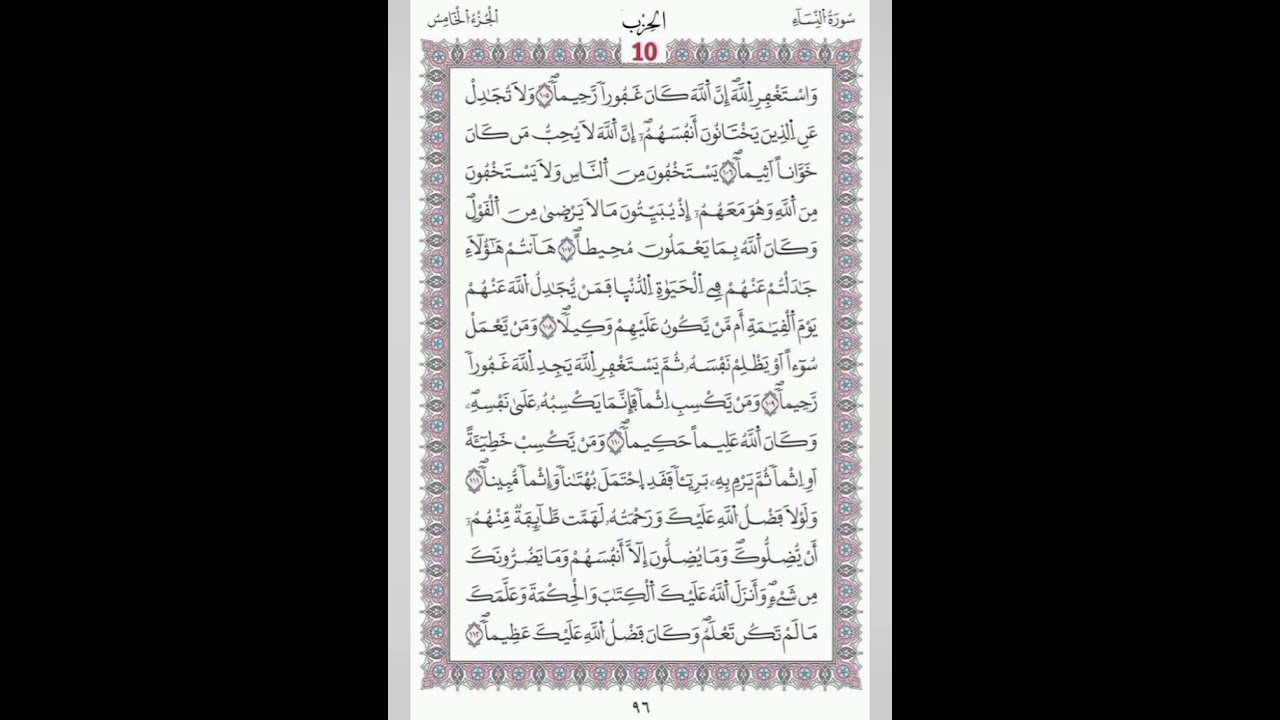 سُورَةُ النِّسَآءِ
الحِزْب
الْجُزْءُ الْخَامِسُ
10
وَاسْتَغْفِرِ اِللَّهَۖ إِنَّ اَللَّهَ كَانَ غَفُوراٗ رَّحِيماٗۖ ١٠٥ وَلَا تُجَٰدِلْ
عَنِ اِلذِينَ يَخْتَانُونَ أَنفُسَهُمُۥٓۖ إِنَّ اَللَّهَ لَا يُحِبُّ مَن كَانَ
خَوَّاناً اَثِيماٗۖ ١٠٦ يَسْتَخْفُونَ مِنَ اَلنَّاسِ وَلَا يَسْتَخْفُونَ
مِنَ اَللَّهِ وَهُوَ مَعَهُمُۥٓ إِذْ يُبَيِّتُونَ مَا لَا يَرْضَىٰ مِنَ اَلْقَوْلِۖ
وَكَانَ اَللَّهُ بِمَا يَعْمَلُونَ مُحِيطاًۖ ١٠٧ هَٰٓأَنتُمْ هَٰٓؤُلَآءِ
جَٰدَلْتُمْ عَنْهُمْ فِے اِلْحَيَوٰةِ اِلدُّنْيٜا فَمَنْ يُّجَٰدِلُ اُللَّهَ عَنْهُمْ
يَوْمَ اَلْقِيَٰمَةِ أَم مَّنْ يَّكُونُ عَلَيْهِمْ وَكِيلاٗۖ ١٠٨ وَمَنْ يَّعْمَلْ
سُوٓءاً اَوْ يَظْلِمْ نَفْسَهُۥ ثُمَّ يَسْتَغْفِرِ اِللَّهَ يَجِدِ اِللَّهَ غَفُوراٗ
رَّحِيماٗۖ ١٠٩ وَمَنْ يَّكْسِبِ اِثْماٗ فَإِنَّمَا يَكْسِبُهُۥ عَلَىٰ نَفْسِهِۦۖ
وَكَانَ اَللَّهُ عَلِيماً حَكِيماٗۖ ١١٠ وَمَنْ يَّكْسِبْ خَطِيٓـَٔةً
اَوِ اِثْماٗ ثُمَّ يَرْمِ بِهِۦ بَرِيٓـٔاٗ فَقَدِ اِحْتَمَلَ بُهْتَٰناٗ وَإِثْماٗ مُّبِيناٗۖ ١١١
وَلَوْلَا فَضْلُ اُللَّهِ عَلَيْكَ وَرَحْمَتُهُۥ لَهَمَّت طَّآئِفَةٌ مِّنْهُمُۥٓ
أَنْ يُّضِلُّوكَۖ وَمَا يُضِلُّونَ إِلَّآ أَنفُسَهُمْ وَمَا يَضُرُّونَكَ
مِن شَےْءٖۖ وَأَنزَلَ اَللَّهُ عَلَيْكَ اَلْكِتَٰبَ وَالْحِكْمَةَ وَعَلَّمَكَ
مَا لَمْ تَكُن تَعْلَمُۖ وَكَانَ فَضْلُ اُللَّهِ عَلَيْكَ عَظِيماٗۖ ١١٢
٩٦